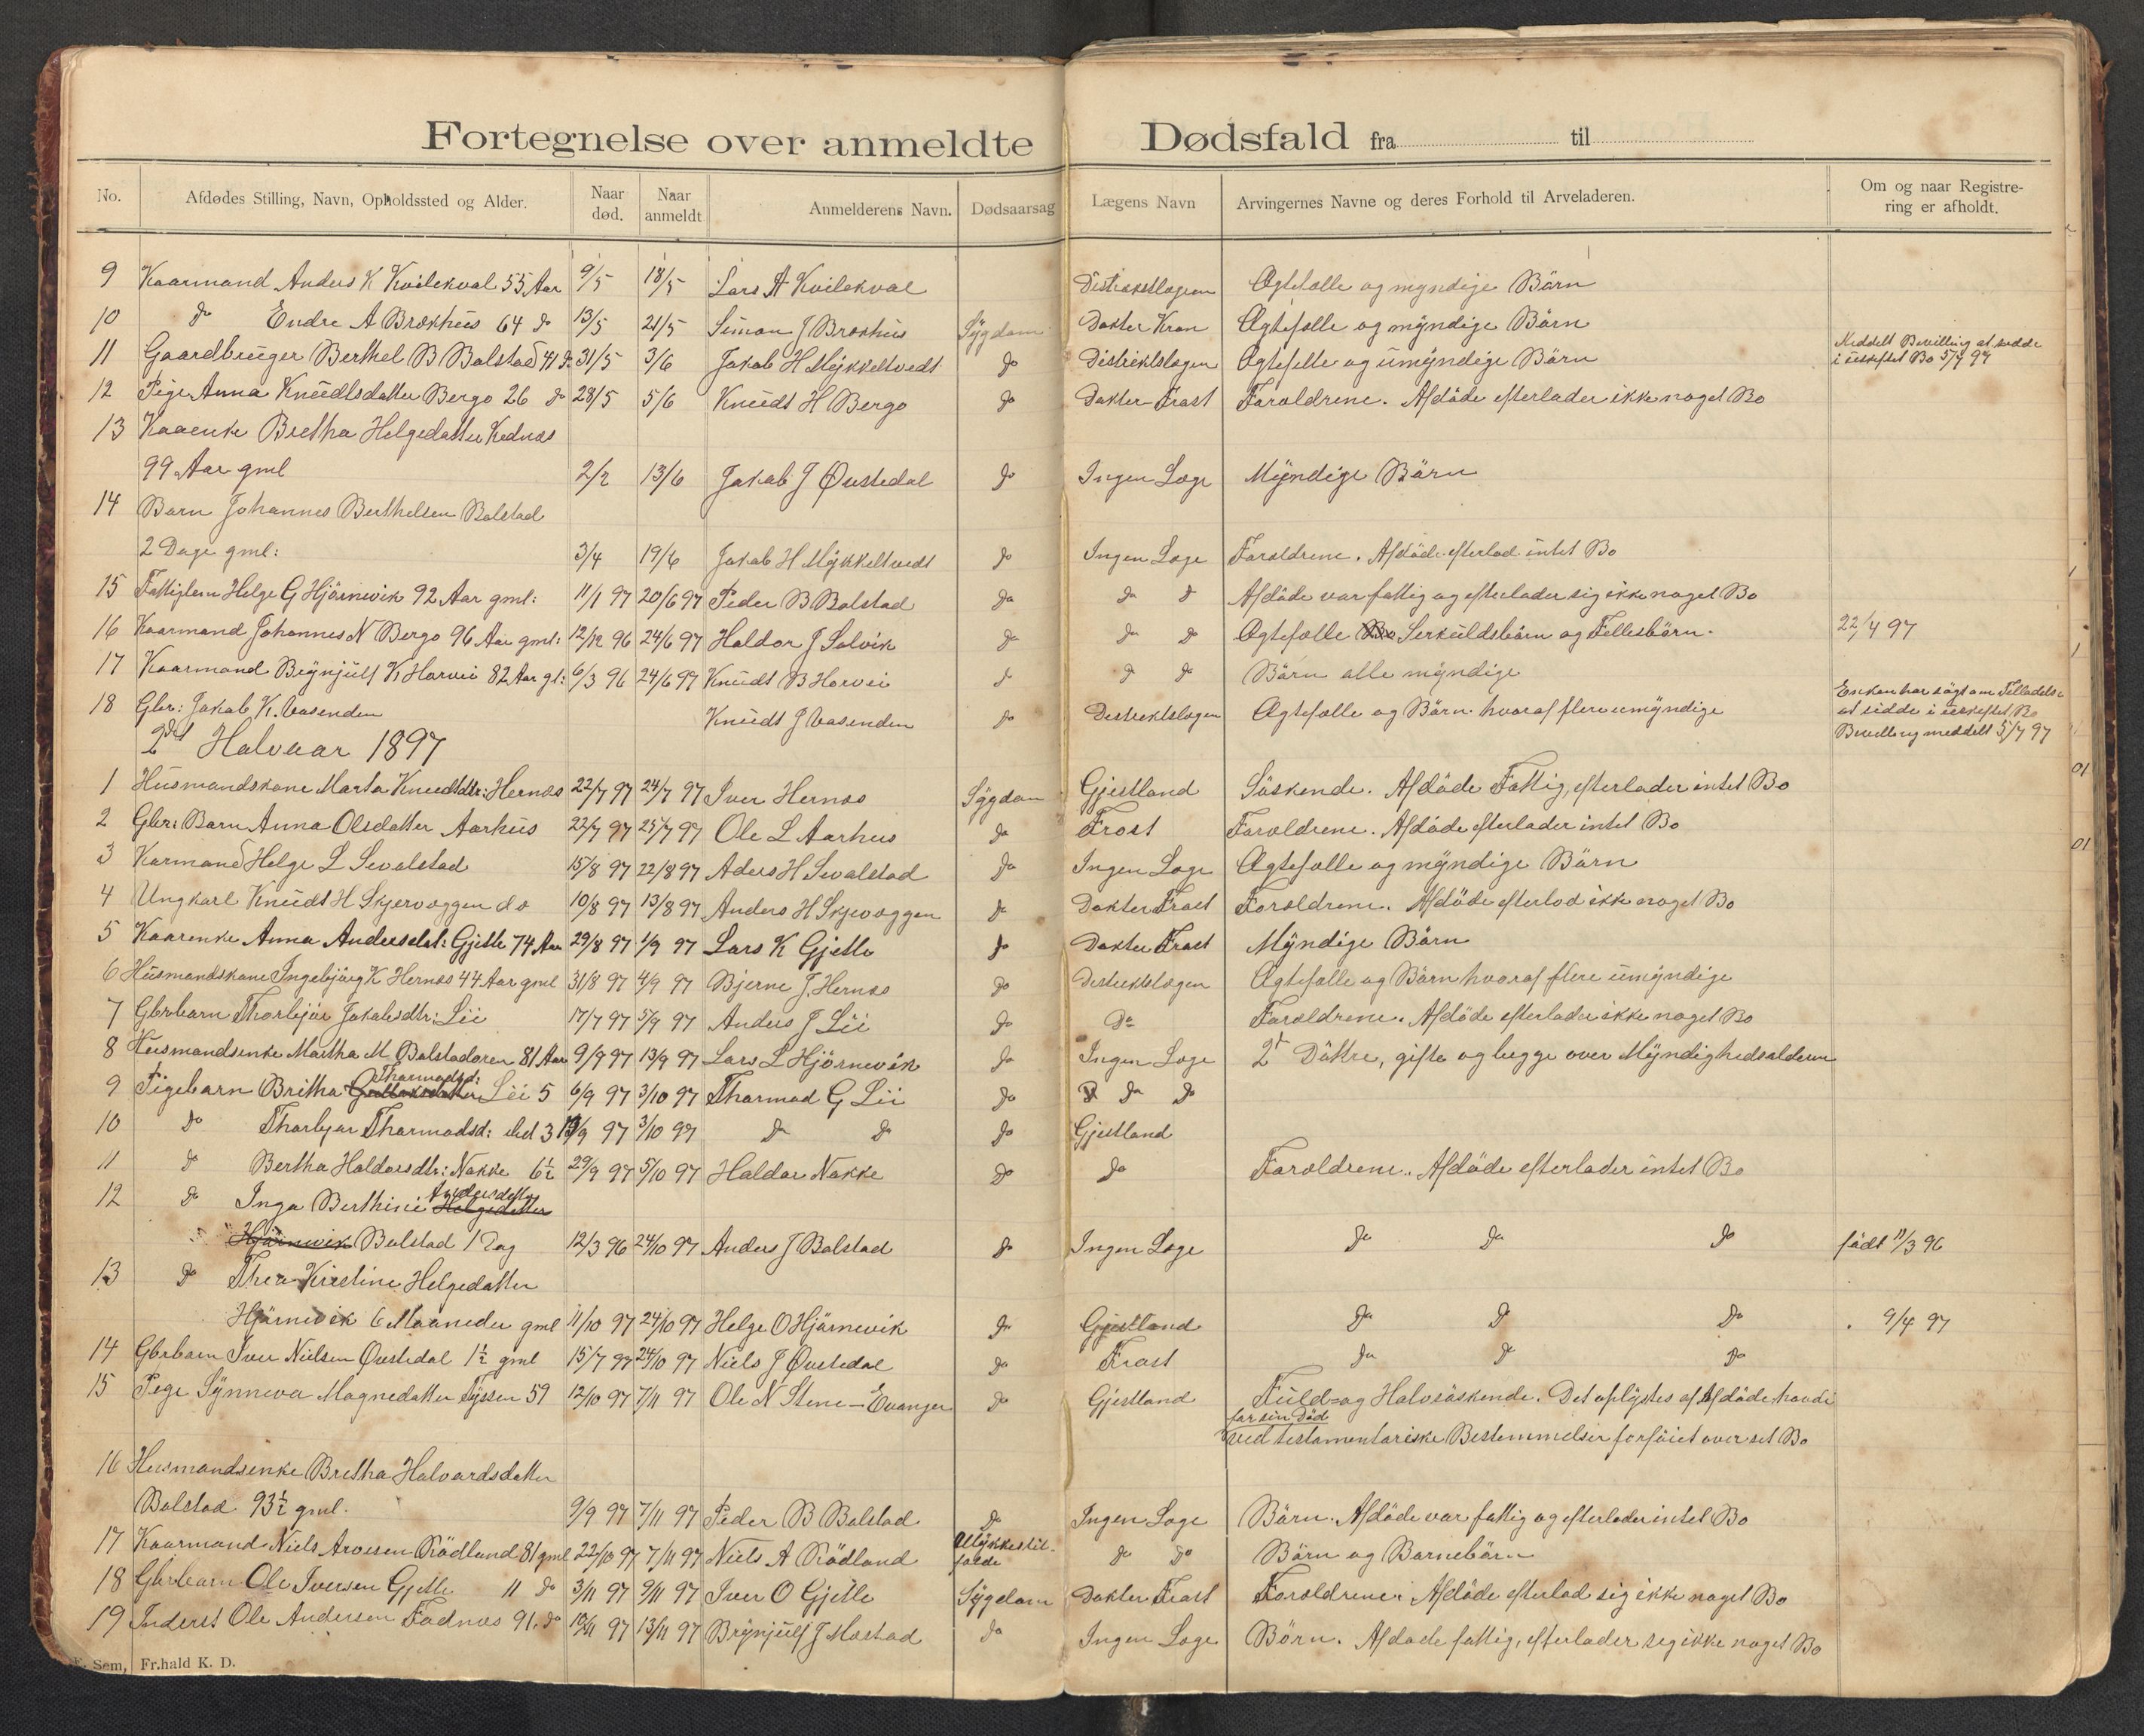 Fortegnelse over anmeldte Dødsfald fra til
No. Afdødes Stilling, Navn, Opholdssted og Alder. Naar død. Naar anmeldt Anmelderens Navn. Dødsaarsag Lægens Navn Arvingernes Navne og deres Forhold til Arveladeren. Om og naar Registrering er afholdt.
9 Kaarmand Anders K Kvilekval 55 Aar 9/5 18/5 Lars A Kvilekval Distriktslægen Ægtefælle og myndige Börn
10 do Endre A Brækhus 64 do 13/5 21/5 Simon J Brækhus Sygdom Dokter Kran Ægtefælle og myndige Börn
11 Gaardbruger Berthel B Bolstad 41 do 31/5 3/6 Jakob H Mykkeltvedt do Distriktslægen Ægtefelle og umyndige Börn Meddelt Bevilling at sidde
i uskiftet Bo 5/7 97
12 Pige Anna Knudtsdatter Bergo 26 do 28/5 5/6 Knudt H Bergo do Dokter Frost Forældrene. Afdöde efterlader ikke noget Bo
13 Kaaenke Bretha Helgedatter
99 Aar gml 2/2 13/6 Jakob J Øvstedal do Ingen Læge Myndige Börn
14 Barn Johannes Berthelsen Bolstad
2 Dage gml: 3/4 19/6 Jakob H Mykkeltvedt do Ingen Læge Forældrene. Afdöde efterlod intet Bo
15 Fattiglem Helge G Hjörnevik 92 Aar gml: 11/1 97 20/6 97 Peder B Bolstad do do do Afdöde var fattig og efterlader sig ikke noget Bo
16 Kaarmand Johannes N Bergo 96 Aar gml: 12/12 96 24/6 97 Haldor J Solvik do do do Ægtefælle Serkuldsbörn og Fellesbörn. 22/4 97
17 Kaarmand Brynjulf K Horvei 82 Aar gl: 6/3 96 24/6 97 Knudt B Horvei do do do Börn alle myndige
18 Gbr: Jakob K. Vasenden Knudt J Vasenden do Destrektslægen Ægtefælle og Börn hvoraf flere umyndige Enken har sögt om Tilladelse
at sidde i uskiftet Bo
Bevilling meddelt 5/7 97
2det Halvaar 1897
1 Husmandskone Marta Knudtsdtr: Hernæs 22/7 97 24/7 97 Iver Hernæs Sygdom Gjestland Söskende. Afdöde Fattig, efterlader intet Bo
2 Gbr: Barn Anna Olsdatter Aarhus 22/7 97 25/7 97 Ole L Aarhus do Frost Forældrene. Afdöde efterlader intet Bo
3 Karmand Helge L Sevalstad 15/8 97 22/8 97 Aders H Sevalstad do Ingen Læge Ægtefælle og myndige Börn
4 Ungkarl Knudt H Skjervaggen do 10/8 97 13/8 97 Anders H Skjevaggen do Dokter Frost Forældrene. Afdöde efterlod ikke noget Bo
5 Kaarenke Anna Andersdat: Gjelle 74 Aar 29/8 97 1/9 97 Lars K Gjelle do Dokter Frost Myndige Börn
6 Husmandskone Ingebjörg K Hernæs 44 Aar gml 31/8 97 4/9 97 Bjerne J. Hernæs do Destrektslægen Ægtefælle og Börn hvoraf flere umyndige
7 Gbrbarn Thorbjör Jakobsdtr: Lii 17/7 97 5/9 97 Anders J Lii do Do Forældrene. Afdöde efterlader ikke noget Bo
8 Husmandsenke Martha M Bolstadøren 81 Aar 9/9 97 13/9 97 Lars L Hjörnevik do Ingen Læge 2 Döttre, gifte og begge over Myndighedsalderen
9 Pigebarn Britha Tharmodsd: Lii 5 6/9 97 3/10 97 Tharmod G Lii do do do
10 do Thorbjør Tharmodsd: ibd 3 19/9 97 3/10 97 do do do Gjestland
11 do Bertha Haldorsdtr: Nakke 6½ 29/9 97 5/10 97 Haldor Nakke do do Forældrene. Afdöde efterlader intet Bo
12 do Inga Berthine Helgedatter Andersdatter
Hjörnevik Bolstad 1 Dag 12/3 96 24/10 97 Anders J Bolstad do Ingen Læge do do do födt 11/3 96
13 do Thea Kirstine Helgedatter
Hjörnevik 6 Maaneder gml 11/10 97 24/10 97 Helge O Hjörnevik do Gjestland do do do 9/4 97
14 Gbrbarn Iver Nielsen Øvstedal 1½ gml 15/7 97 24/10 97 Niels J Øvstedal do Frost do do do
15 Pige Synneva Magnedatter Fyssen 59 12/10 97 7/11 97 Ole N Stene - Evanger do Gjestland Fuld- og Halvsöskende. Det oplystes at Afdöde havde
for sin Död
ved testamentariske Bestemmelser forföiet over sit Bo
16 Husmandsenke Bretha Halvardsdatter
Bolstad 93½ gml. 9/9 97 7/11 97 Peder B Bolstad do Ingen Læge Börn. Afdöde var fattig og efterlader intet Bo
17 Kaarmand Niels Arvesen Rödland 81 gml 22/10 97 7/11 97 Niels A Rödland Ulykkestilfælde do do Börn og Barnebörn
18 Gbrbarn Ole Iversen Gjelle 11 do 3/11 97 9/11 97 Iver O Gjelle Sygdom Dokter Frost Forældrene. Afdöde efterlod sig ikke noget Bo
19 Inderst Ole Andersen Fadnæs 91. do 10/11 97 13/11 97 Brynjulf J Mostad do Ingen Læge Börn. Afdøde fattig, efterlader seg ikke noget Bo
Sem, Fr.hald K. D.